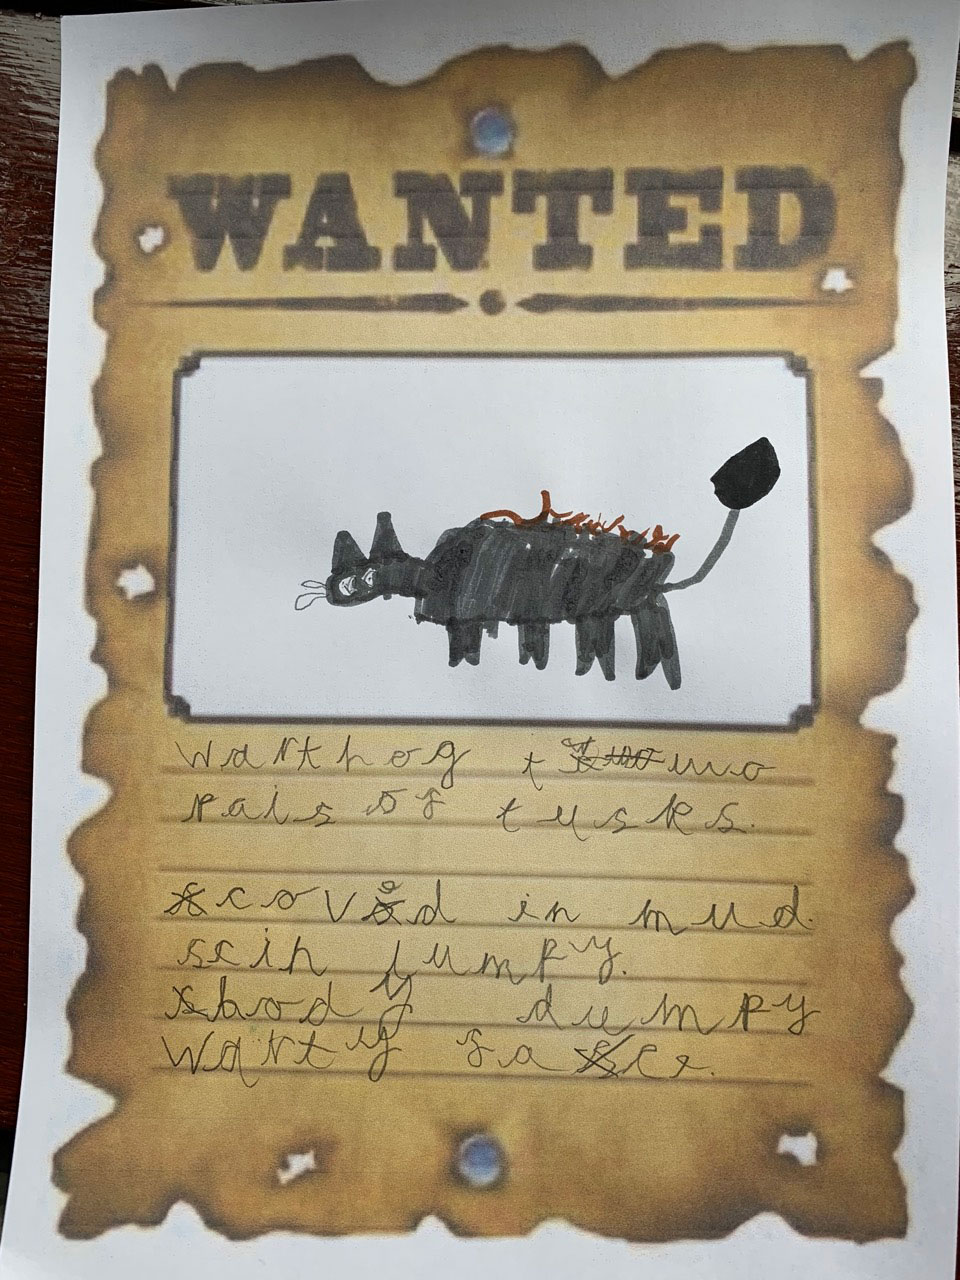 WANTED
warthog two
pais of tusks.
coved in mud.
scin lumpy.
body dumpy
Warty face.